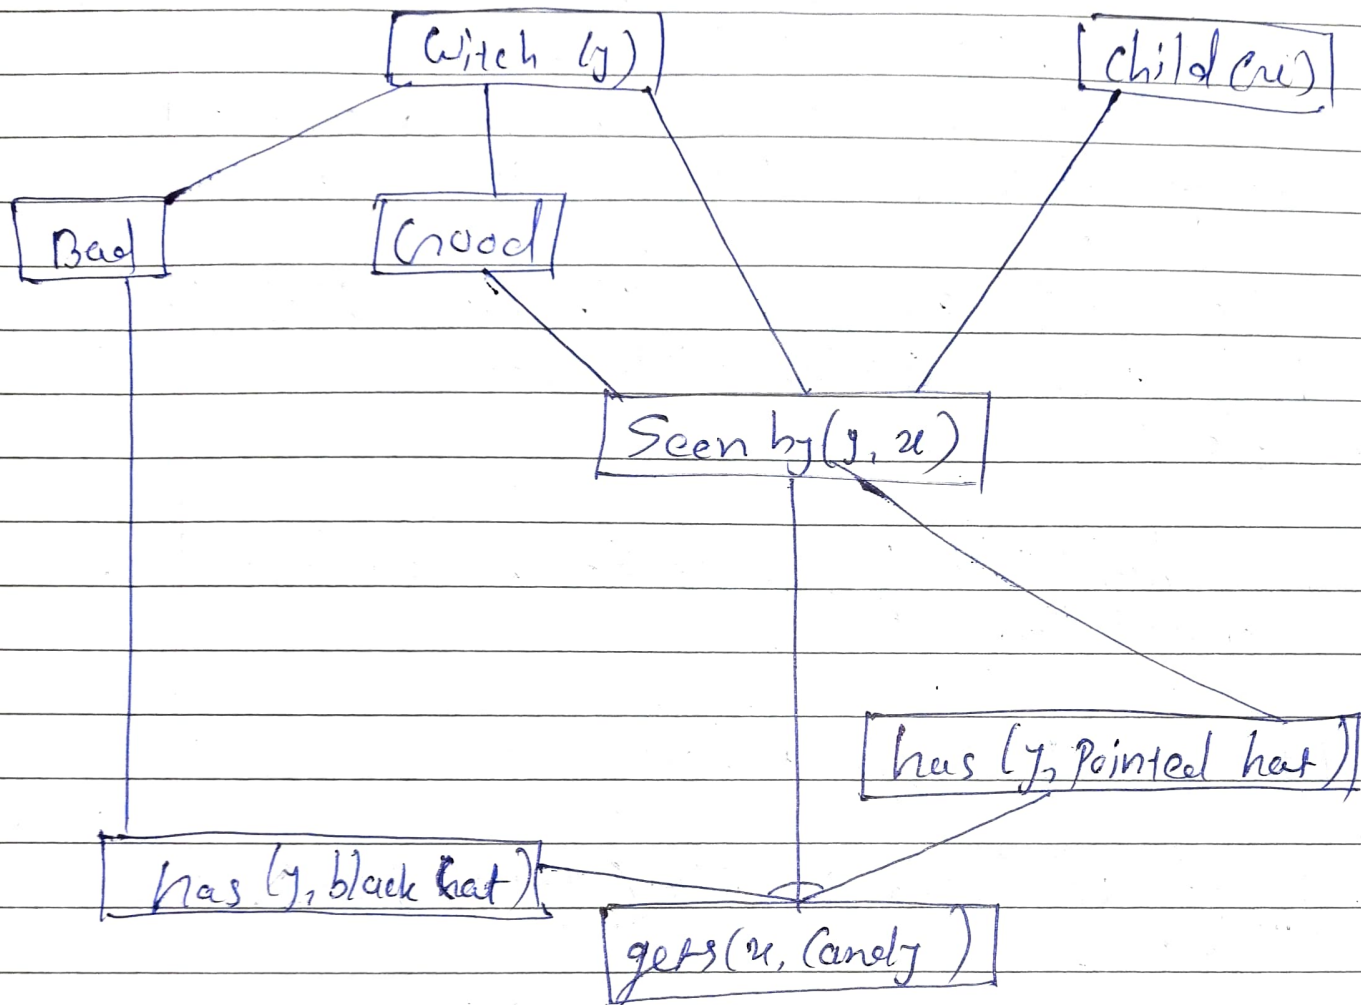 Witch (y)
Child (x)
Bad
Good
Seen by (y, x)
has (y, Pointed hat)
has (y, black hat)
gets (x, Candy )